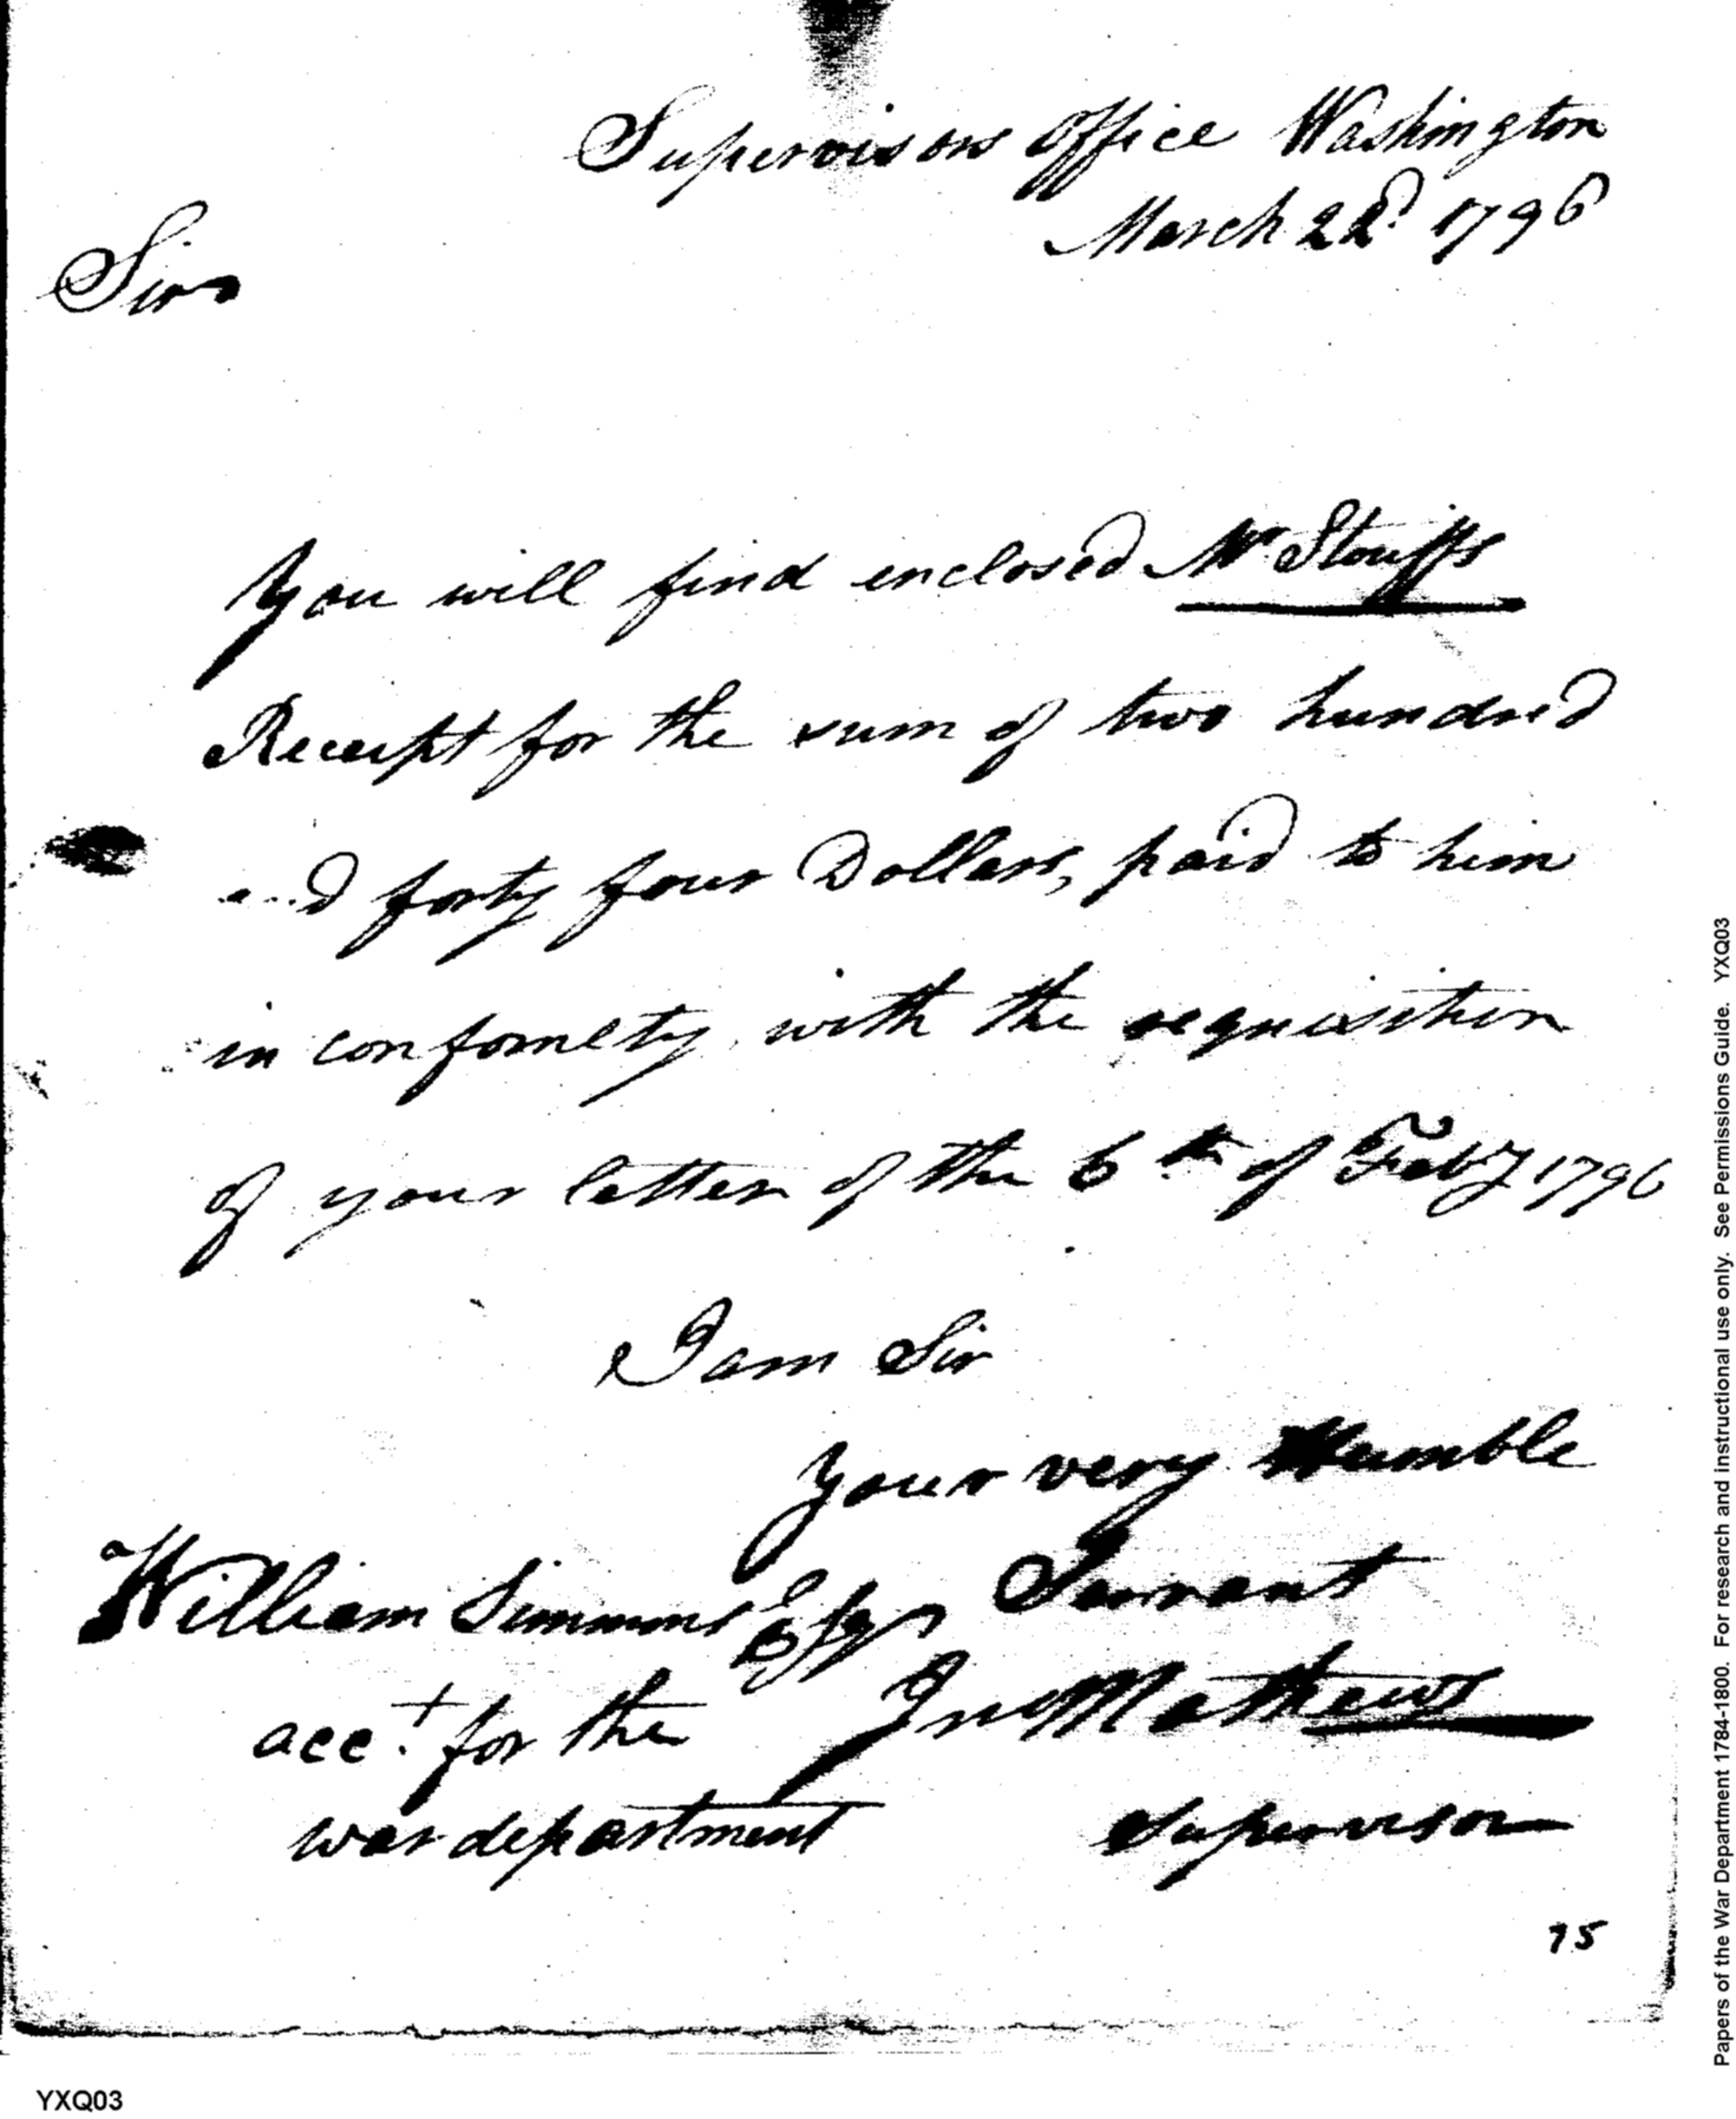 Supervisors Office Washington
March 22d 1796
Sir
You will find enclosed Mr Stouffs
Receipt for the sum of two hundred
and forty four Dollars, paid to him
in confomety with the requisition
of your letter of the 6th of Feby 1796
I am Sir
your very Humble
Servant
William Simmons Esqr
acct. for the
war department
Jno Mathews
Supervisor
75
YXQ03
Papers of the War Department 1784-1800. For research and instructional use only. See Permissions Guide. YXQ03